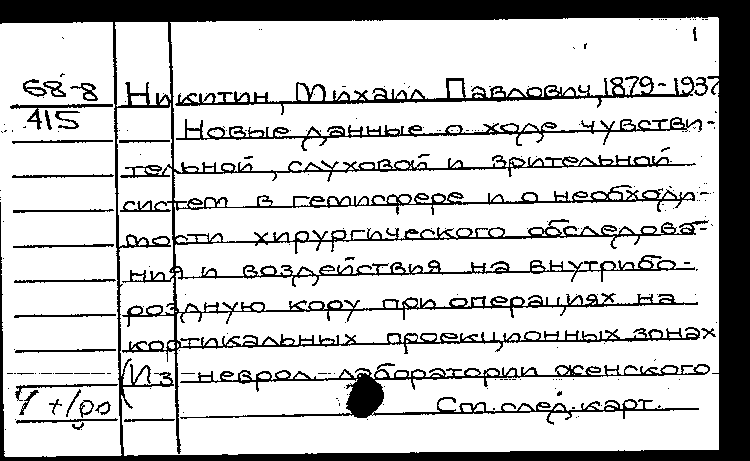 1
68-8 Никитин, Михаил Павлович, 1879-1937
415 Новые данные о ходе чувстви-
тельной, слуховой и зрительной
систем в гемисфере и о необходи-
мости хирургического обследова-
ния и воздействия на внутрибо-
роздную кору при операциях на
кортикальных проекционных зонах
(Из неврол. лаборатории женского
См. след. карт.